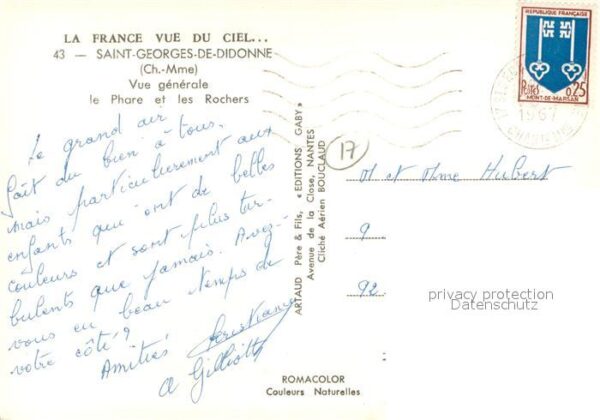 LA FRANCE VUE DU CIEL...
43 — SAINT-GEORGES-DE-DIDONNE
(Ch.-Mme)
Vue générale
le Phare et les Rochers
Le grand air
fait du bien à tous,
mais particulièrement aux
enfants qui ont de belles
couleurs et sont plus tur-
bulents que jamais. Avez-
vous eu beau temps de
votre côté ?
Amitiés
ARTAUD Père & Fils, « EDITIONS GABY »
Avenue de la Close, NANTES
Cliché Aérien BOUCLAUD
ROMACOLOR
Couleurs Naturelles
REPUBLIQUE FRANÇAISE
Postes
0,25
MONT-DE-MARSAN
1967
17
M et Mme Hubert
9
92
privacy protection
Datenschutz